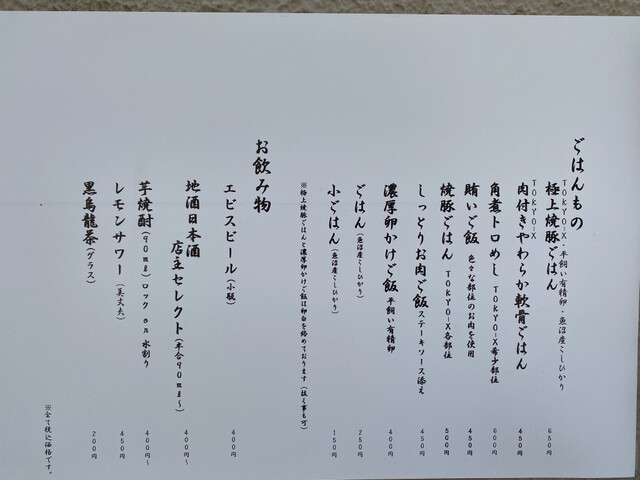 ごはんもの
TOKYO-X・平飼い有精卵・魚沼産こしひかり
極上焼豚ごはん 650円
TOKYO-X
肉付きやわらか軟骨ごはん 450円
角煮トロめし TOKYO-X希少部位 600円
賄いご飯 色々な部位のお肉を使用 450円
焼豚ごはん TOKYO-X各部位 500円
しっとりお肉ご飯 ステーキソース添え 450円
濃厚卵かけご飯 平飼い有精卵 400円
ごはん(魚沼産こしひかり) 250円
小ごはん(魚沼産こしひかり) 150円
※極上焼豚ごはんと濃厚卵かけご飯は卵白を絡めております(抜く事も可)
お飲み物
エビスビール(小瓶) 400円
地酒日本酒
店主セレクト(半合90ml〜) 400円〜
芋焼酎(90ml)ロック or 水割り 400円〜
レモンサワー(美丈夫) 450円
黒烏龍茶(グラス) 200円
※全て税込価格です。